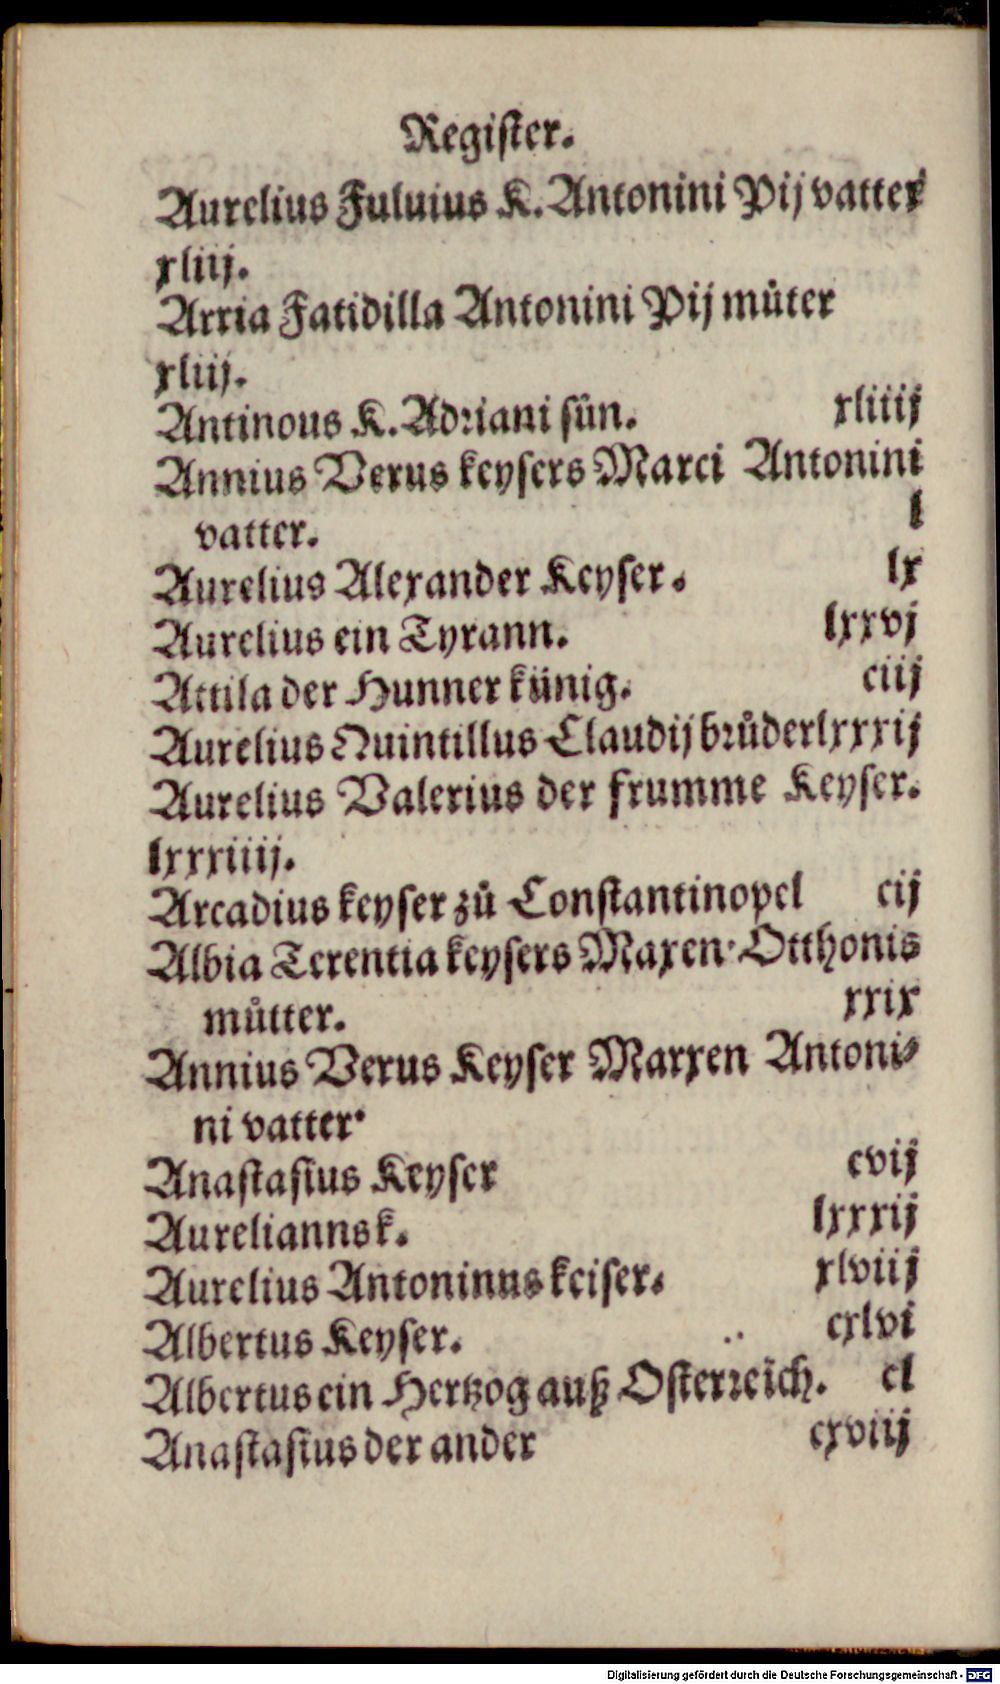 Register.
Aurelius Fuluius K. Antonini Pij vatter
xliij.
Arria Fatidilla Antonini Pij můter
xliij.
Antinous K. Adriani sůn. xliiij
Annius Verus keysers Marci Antonini
vatter. l
Aurelius Alexander Keyser. lx
Aurelius ein Tyrann. lxxvj
Attila der Hunner künig. ciij
Aurelius Quintillus Claudij brůder lxxxij
Aurelius Valerius der frumme Keyser.
lxxxiiij.
Arcadius keyser zů Constantinopel cij
Albia Terentia keysers Maxen Otthonis
můtter. xxix
Annius Verus Keyser Marxen Antoni⸗
ni vatter
Anastasius Keyser cvij
Aureliannsk. lxxxij
Aurelius Antoninus keiser. xlviij
Albertus Keyser. cxlvi
Albertus ein Hertzog auß Osterreich. cl
Anastasius der ander cxviij
Digitalisierung gefördert durch die Deutsche Forschungsgemeinschaft - DFG